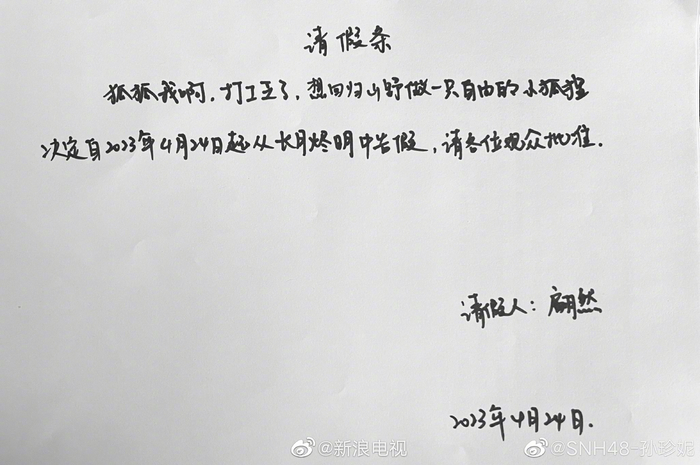 请假条
狐狐我啊,打工王了,想回归山野做一只自由的小狐狸
决定自2023年4月24日起从长月烬明中告假,请各位观众批准.
请假人:翩然
2023年4月24日.
@新浪电视
@SNH48-孙珍妮